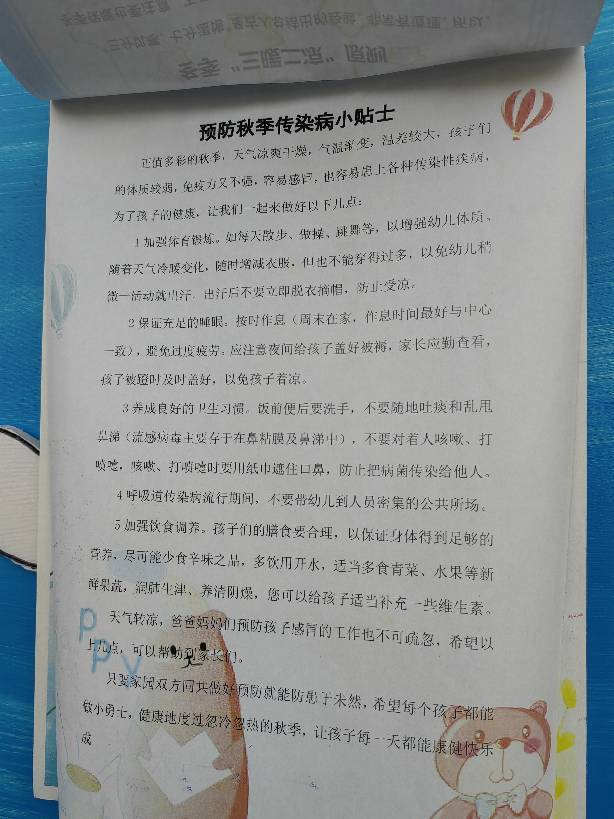 冬季“三暖二凉”原则
预防秋季传染病小贴士
正值多彩的秋季，天气凉爽干燥，气温渐变，温差较大，孩子们
的体质较弱，免疫力又不强，容易感冒，也容易患上各种传染性疾病，
为了孩子的健康，让我们一起来做好以下几点：
1加强体育锻炼。如每天散步、做操、跳舞等，以增强幼儿体质。
随着天气冷暖变化，随时增减衣服，但也不能穿得过多，以免幼儿稍
微一活动就出汗。出汗后不要立即脱衣摘帽，防止受凉。
2保证充足的睡眠。按时作息（周末在家，作息时间最好与中心
一致），避免过度疲劳。应注意夜间给孩子盖好被褥，家长应勤查看，
孩子被蹬时及时盖好，以免孩子着凉。
3养成良好的卫生习惯。饭前便后要洗手，不要随地吐痰和乱甩
鼻涕（流感病毒主要存于在鼻粘膜及鼻涕中），不要对着人咳嗽、打
喷嚏，咳嗽、打喷嚏时要用纸巾遮住口鼻，防止把病菌传染给他人。
4呼吸道传染病流行期间，不要带幼儿到人员密集的公共所场。
5加强饮食调养。孩子们的膳食要合理，以保证身体得到足够的
营养，尽可能少食辛味之品，多饮用开水，适当多食青菜、水果等新
鲜果蔬，润肺生津、养清阴燥，您可以给孩子适当补充一些维生素。
天气转凉，爸爸妈妈们预防孩子感冒的工作也不可疏忽，希望以
上几点，可以帮助到家长们。
只要家园双方同共做好预防就能防患于未然，希望每个孩子都能
做小勇士，健康地度过忽冷忽热的秋季，让孩子每一天都能康健快乐
成
PPY